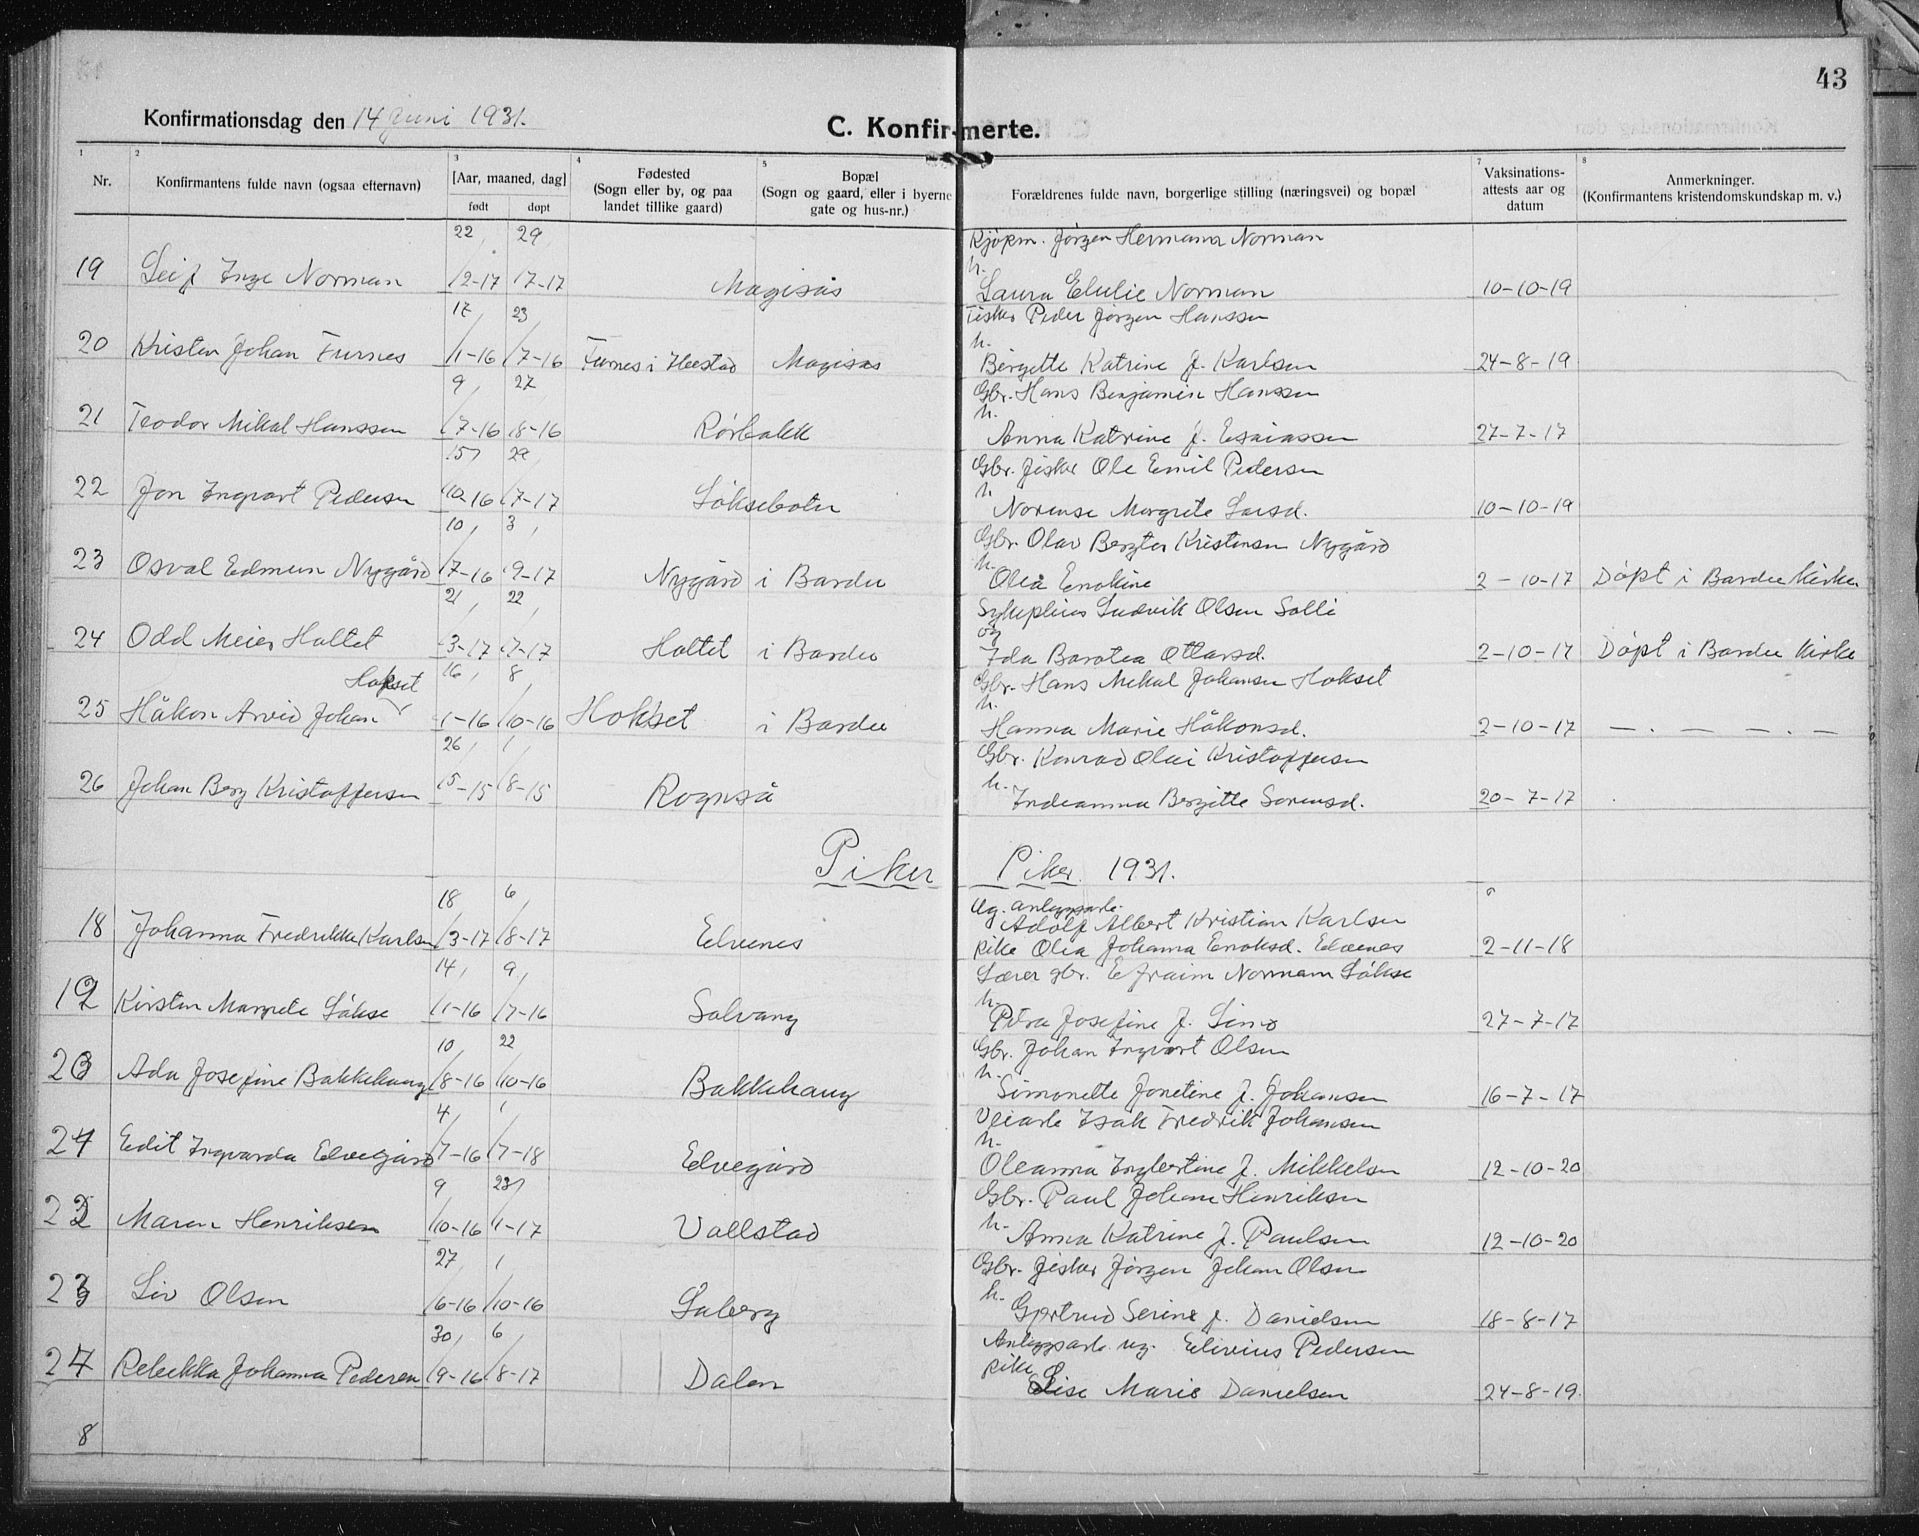 43
Konfirmationsdag den 14 juni 1931.
C. Konfirmerte.
1 2 3 4 5 7 8
Nr.
Konfirmantens fulde navn (ogsaa efternavn)
[Aar, maaned, dag]
født døpt
Fødested
(Sogn eller by, og paa
landet tillike gaard)
Bopæl
(Sogn og gaard, eller i byerne
gate og hus-nr.)
Forældrenes fulde navn, borgerlige stilling (næringsvei) og bopæl
Vaksinations-
attests aar og
datum
Anmerkninger.
(Konfirmantens kristendomskundskap m. v.)
22/ 29/ Kjøpm. Jørgen Hermann Norman
h.
19 Leif Inge Norman 12-17 7-17 Magisås Laura Elulie Norman 10-10-19
17/ 23/ Fisker Peder Jørgen Hanssen
h.
20 Kristen Johan Furnes 1-16 7-16 Furnes i Ibestad Magisås Bergette Katrine f. Karlsen 24-8-19
9/ 27/ Gbr. Hans Benjamin Hanssen
h.
21 Teodor Mikal Hanssen 7-16 8-16 Rørbakk Anna Katrine f. Esaiassen 27-7-17
15/ 29/ Gbr. fisker Ole Emil Pedersen
h.
22 Jon Ingvart Pedersen 10-16 7-17 Løksebotn Norense Margrete Larsd. 10-10-19
10/ 3/ Gbr. Olav Bergton Kristensen Nygård
h.
23 Osval Edmun Nygård 7-16 9-17 Nygård i Bardu Olea Enokine 2-10-17 Døpt i Bardu kirke
21/ 22/ Ludvik Olsen Solli
og
24 Odd Meier Holtet 3-17 7-17 Holtet i Bardu Ida Barotea Ottarsd. 2-10-17 Døpt i Bardu Kirke
Hokset 16/ 8/ Gbr. Hans Mikal Johansen Hokset
h.
25 Håkon Arvid Johan 1-16 10-16 Hokset i Bardu Hanna Marie Håkonsd. 2-10-17 — . — — . —
26/ 1/ Gbr. Konrad Olai Kristoffersen
h.
26 Johan Berg Kristoffersen 5-15 8-15 Rognså Indeanna Bergitte Sørensd. 20-7-17
Piker Piker 1931.
18 6/ Ug. anleggsarb.
Adolf Albert Kristian Karlsen
18 Johanna Fredrikke Karlsen 3-17 8-17 Elvenes pike Olea Johanna Enoksd. Elvenes 2-11-18
14/ 9/ Lærer gbr. Efraim Normann Løkse
h.
19 Kirsten Margrete Løkse 1-16 7-16 Solvang Petra Josefine f. Lind 27-7-17
10/ 22 Gbr. Johan Ingvart Olsen
h.
20 Ada Josefine Bakkehaug 8-16 10-16 Bakkehaug Simonette Jonetine f. Johansen 16-7-17
4/ 1 Veiarb. Isak Fredrik Johansen
h.
21 Edit Ingvarda Elvegård 7-16 7-18 Elvegård Oleanna Ingbertine f. Mikkelsen 12-10-20
9 23/ Gbr. Paul Johan Henriksen
h.
22 Maren Henriksen 10-16 1-17 Vollstad Anna Katrine f. Paulsen 12-10-20
27/ 1 Gbr. fisker Jørgen Johan Olsen
h.
23 Liv Olsen 6-16 10-16 Laberg Gjertrud Serine f. Danielsen 18-8-17
30/ 6/ Anleggsarb. ug. Elivius Pedersen
pike
24 Rebekka Johanna Pedersen 9-16 8-17 Dalen Lise Marie Danielsen 24-8-19.
8